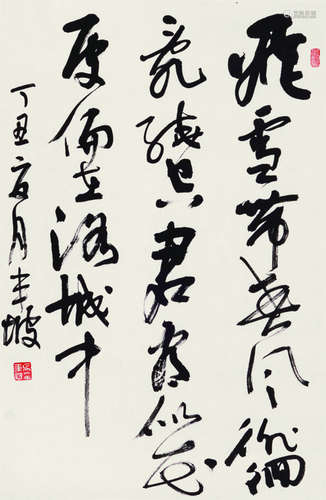 飛雪帶春风徘徊
亂繞空君看似花
處偏在洛城中
丁丑夏月半坡